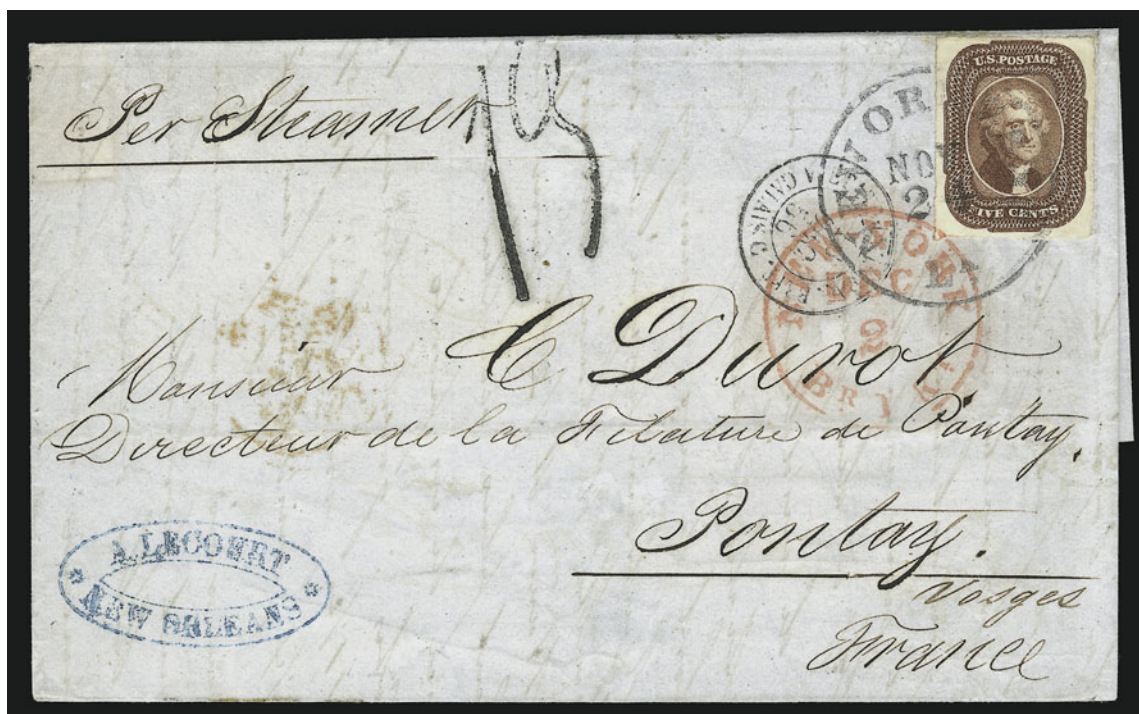 Per Steamer
15
U.S. POSTAGE
FIVE CENTS
NOV
2
LA
NEW YORK
DEC
2
BR
Monsieur C Durot
Directeur de la Filature de Pontay.
Pontay.
Vosges
France
A. LECOURT
NEW ORLEANS